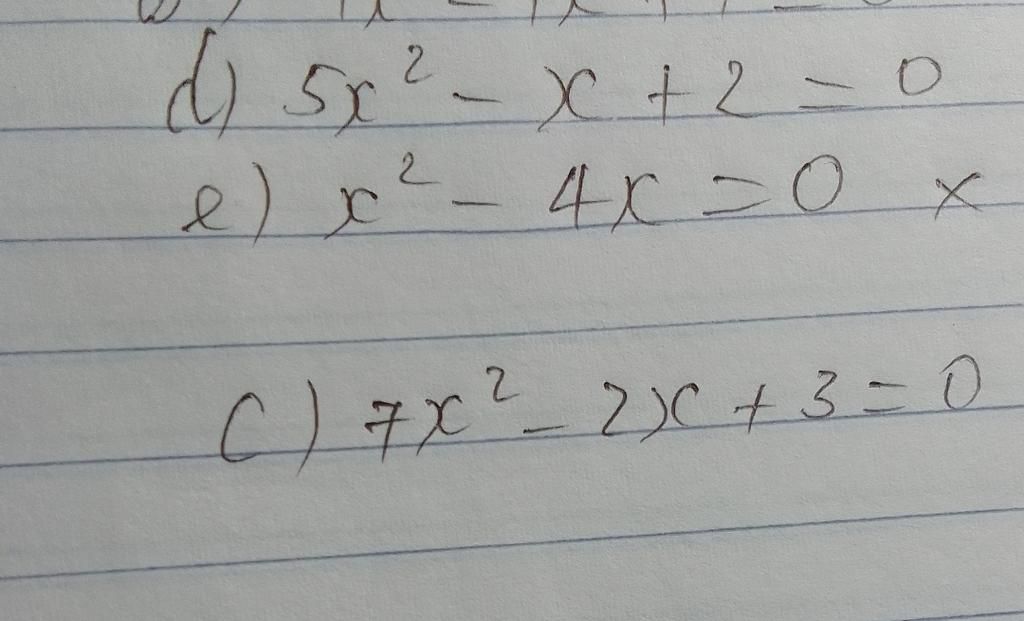 d) 5x² - x + 2 = 0
e) x² - 4x = 0 x
c) 7x² - 2x + 3 = 0